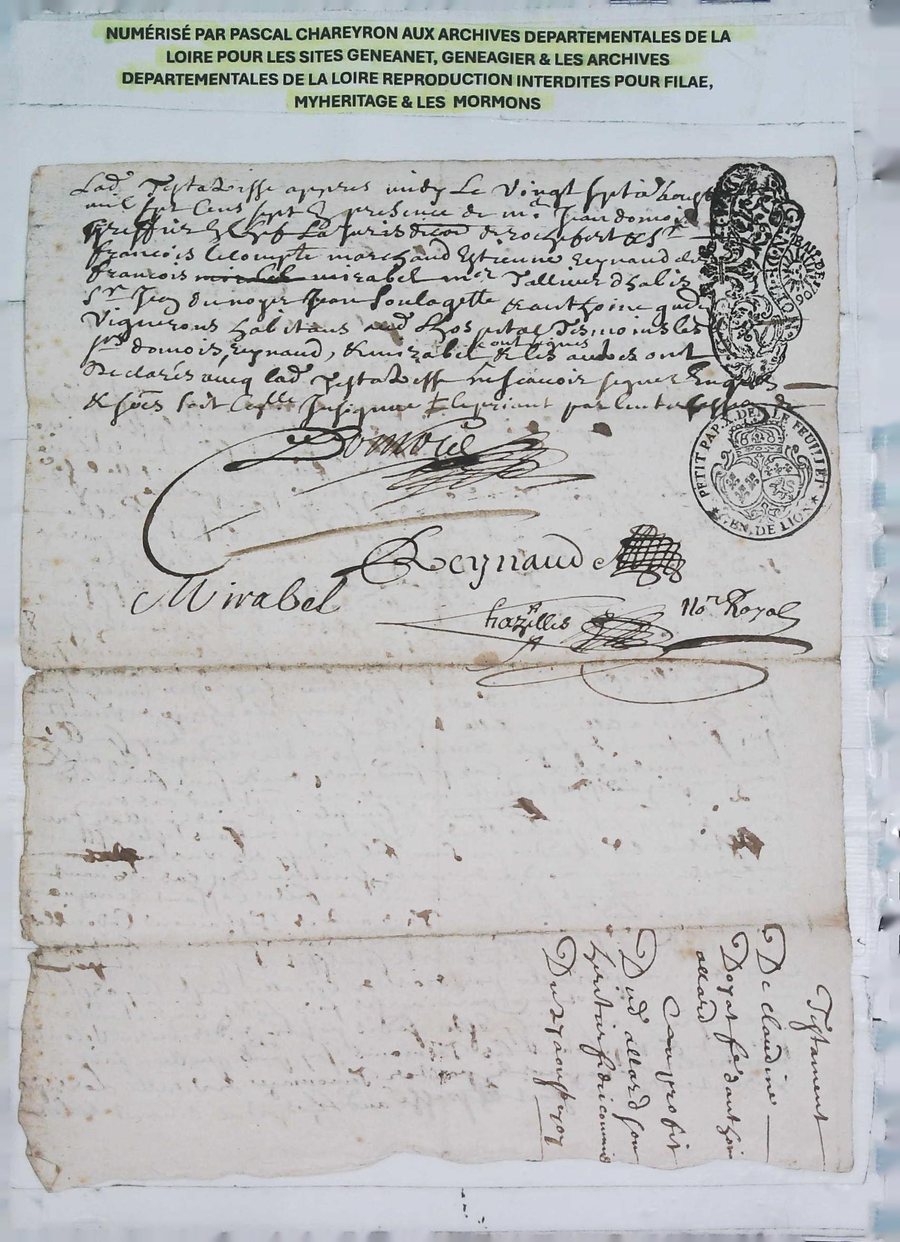 NUMÉRISÉ PAR PASCAL CHAREYRON AUX ARCHIVES DEPARTEMENTALES DE LA
LOIRE POUR LES SITES GENEANET, GENEAGIER & LES ARCHIVES
DEPARTEMENTALES DE LA LOIRE REPRODUCTION INTERDITES POUR FILAE,
MYHERITAGE & LES MORMONS
Lad. Testatrisse appres midy Le Vingt sept
mil sept Cens sept presence de mr. Jean domois
greffier La Jurisdiction de rochefort & sr.
francois marchand Estienne Reynaud
francois mirabel mr Tallieur dhabis
sr. Jean dunoyer Jean Soulagette & anthoine
Vignerons habitans aud. Lhospital Tesmoins les
srs domois, Reynaud, & mirabel ont signes & les autres ont
Declarés avecq lad. Testatrisse ne scavoir signer
Domois
Reynaud
Mirabel
chazelles Nore. Royal
PETIT PAP. X. DE. A LA FEUILLET
GEN. DE LION
Testament
De claudine
Doyat fe. danthoine
allard
Au proffit
Dud. allard son
heritier fideicommis
Du 27 aoust 1707